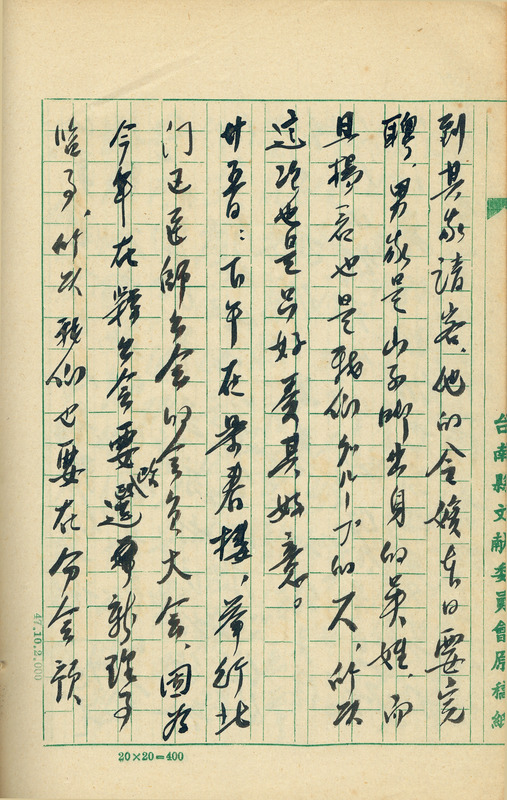 到其家請客、她的令嬡本日要完
聘、男家是山子脚出身的吳姓、而
且楊君也是我們グループ的人、所以
這項也是只好受其好意。
廿五日：下午在景春樓、舉行北
门区醫師公會的会員大会、因為
今年在縣公会要改選理
監事、所以我們也要在分会預
台南縣文献委員會原稿紙
47.10.2.000
20×20=400